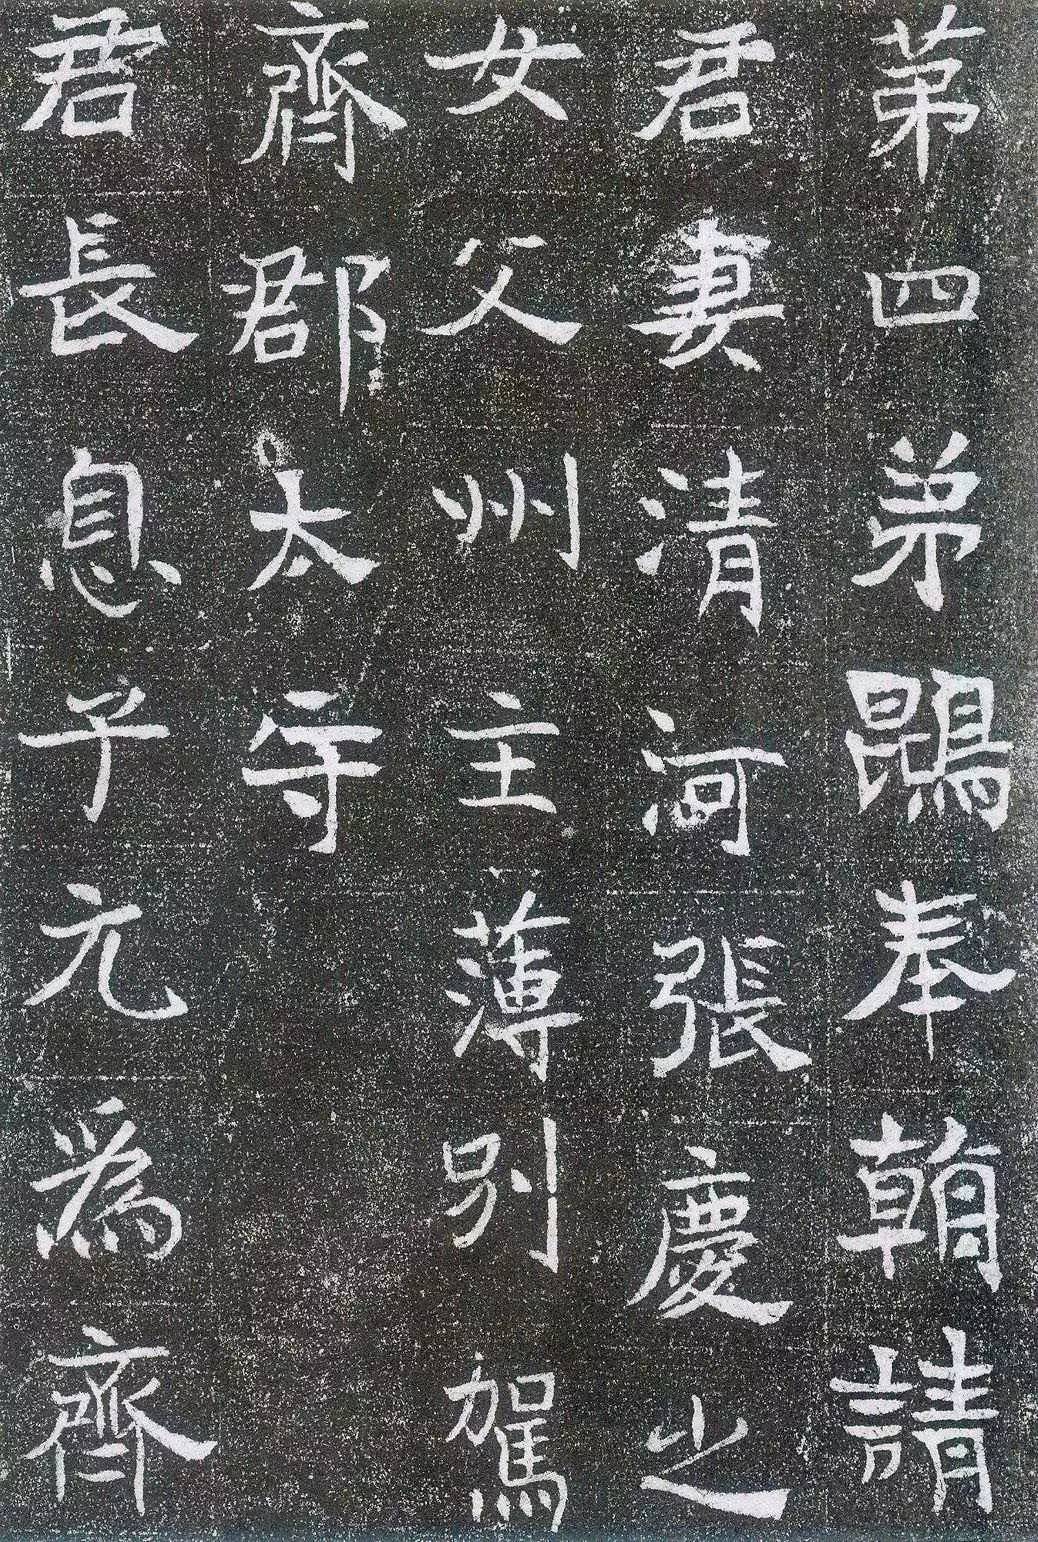 第四弟鶠奉朝請
君妻清河張慶之
女父州主薄別駕
齊郡太守
君長息子元為齊